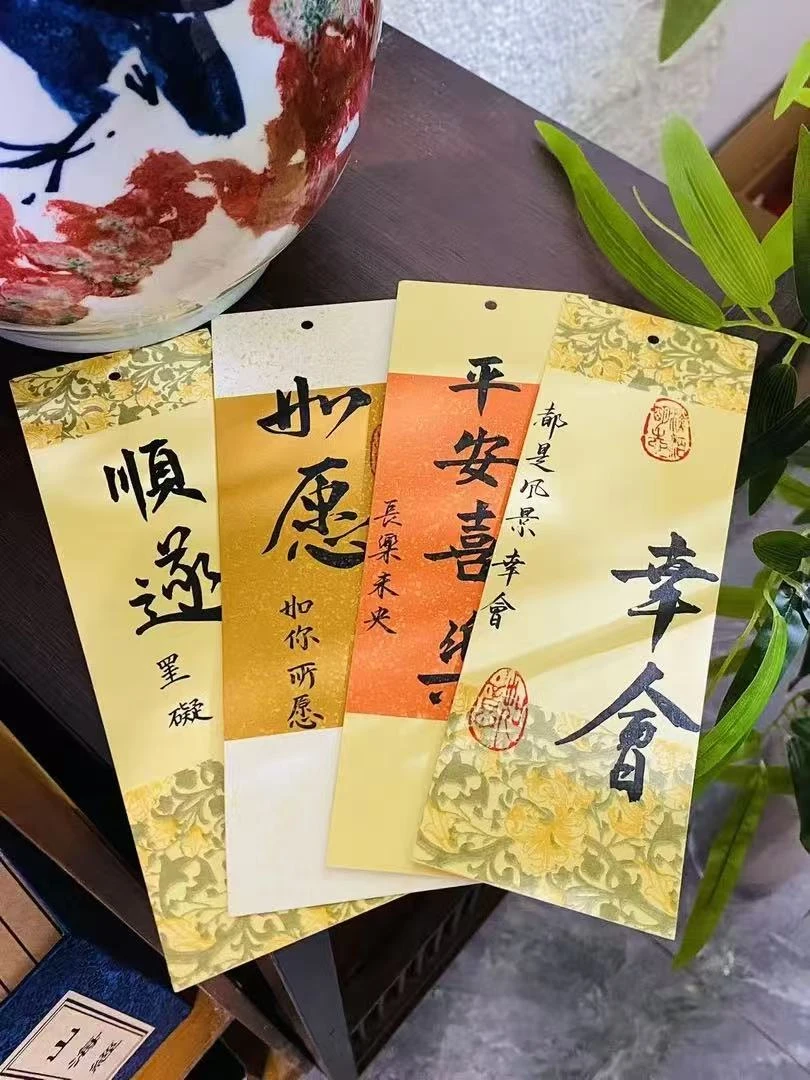 順遂
罣礙
如愿
如你所愿
平安喜樂
長樂未央
都是风景幸會
幸會
山